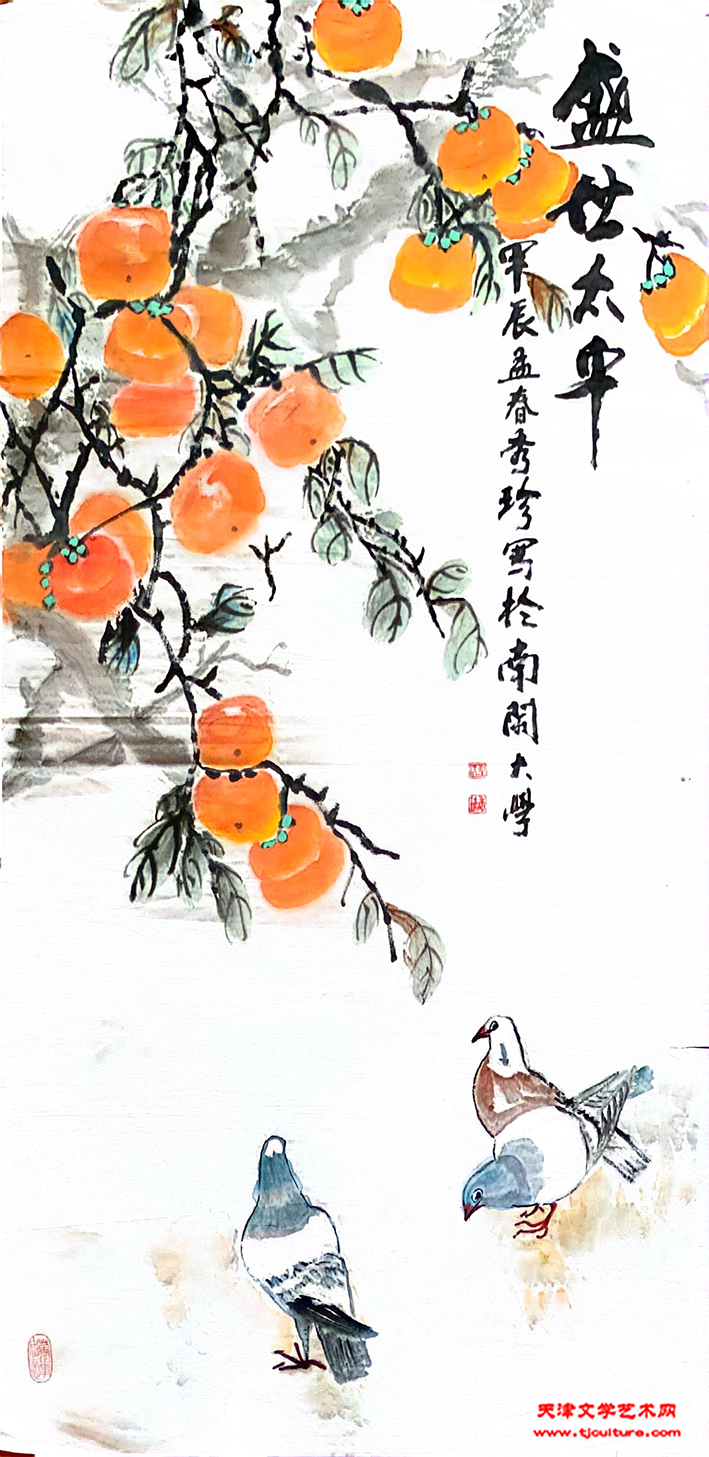 盛世太平
甲辰孟春秀珍写於南開大學
天津文学艺术网
www.tjculture.com